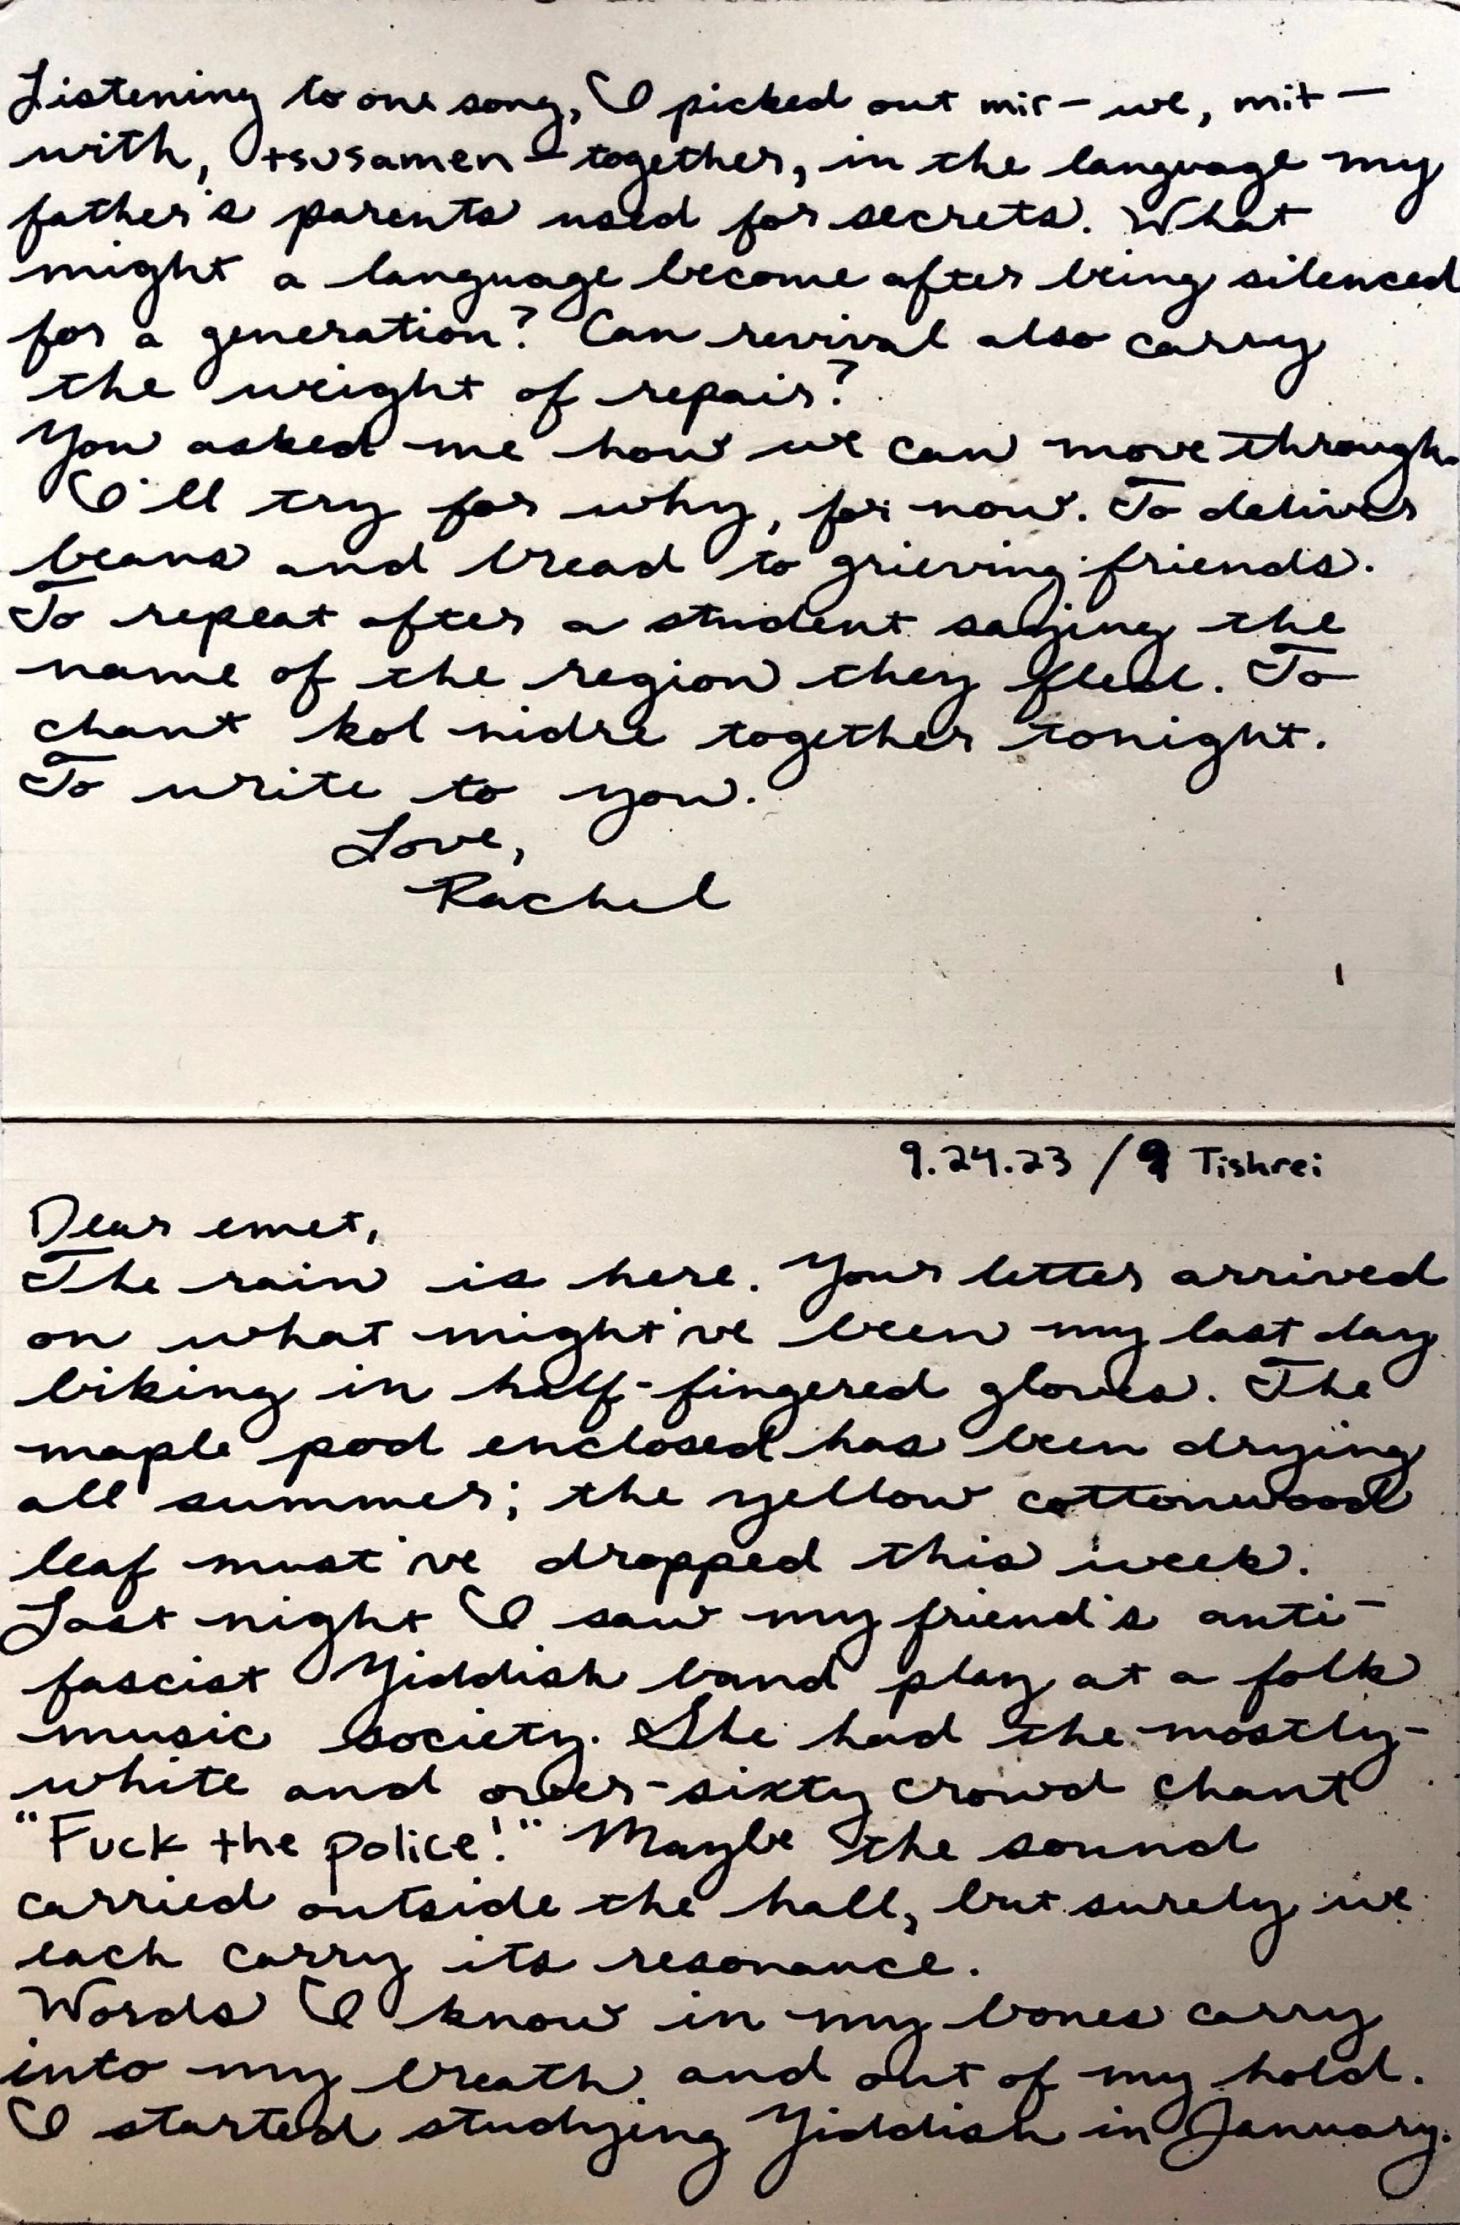 Listening to one song, I picked out mir – we, mit –
with, tsusamen – together, in the language my
father's parents used for secrets. What
might a language become after being silenced
for a generation? Can revival also carry
the weight of repair?
You asked me how we can move through.
I'll try for why, for now. To deliver
beans and bread to grieving friends.
To repeat after a student saying the
name of the region they fled. To
chant kol nidre together tonight.
To write to you.
Love,
Rachel
9.24.23 / 9 Tishrei
Dear emet,
The rain is here. Your letter arrived
on what might've been my last day
biking in half-fingered gloves. The
maple pod enclosed has been drying
all summer; the yellow cottonwood
leaf must've dropped this week.
Last night I saw my friend's anti-
fascist Yiddish band play at a folk
music society. She had the mostly-
white and over-sixty crowd chant
"Fuck the police!" Maybe the sound
carried outside the hall, but surely we
each carry its resonance.
Words I know in my bones carry
into my breath and out of my hold.
I started studying Yiddish in January.